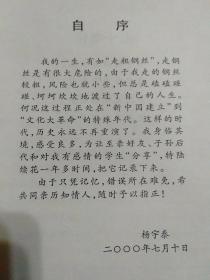 自 序
我的一生，有如“走粗钢丝”，走钢
丝是有很大危险的，由于我走的钢丝
较粗，风险也就小些，但总是磕磕碰
碰、坷坷坎坎地渡过了自己的人生。
何况这历程正处在“新中国建立”到
“文化大革命”的特殊年代。这样的时
代，历史永远不再重演了。我身临其
境，感受良多，为让至亲好友、子孙后
代和对我有感情的学生“分享”，特陆
续花一年多时间，把它记录下来。
由于只凭记忆，错误所在难免，希
共同亲历知情人，随时予以指正！
杨宇泰
二〇〇〇年七月十日